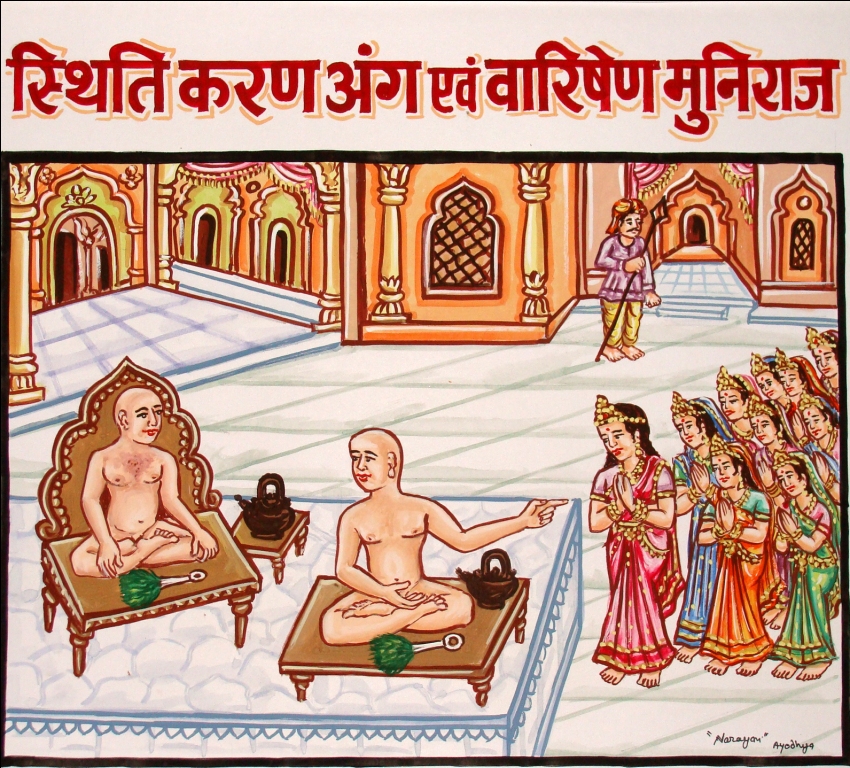 स्थिति करण अंग एवं वारिषेण मुनिराज
"Narayan" Ayodhya